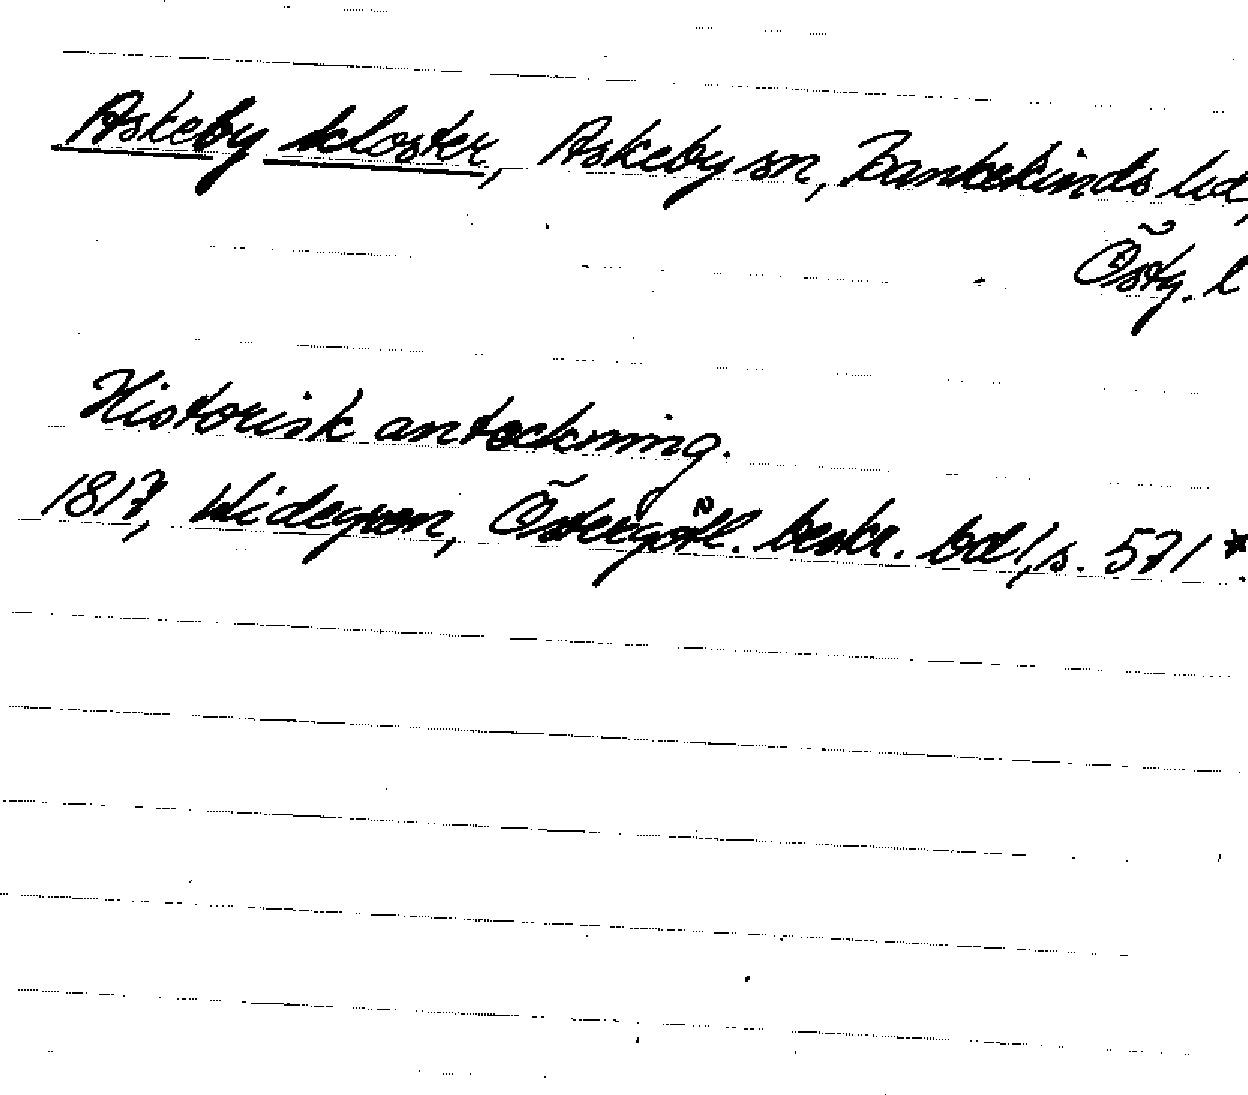 Askeby kloster, Askeby sn, Bankekinds hd,
Östg. l
Historisk anteckning.
1817, Widegren, Östergötl. beskr. bd 1, s. 571*.